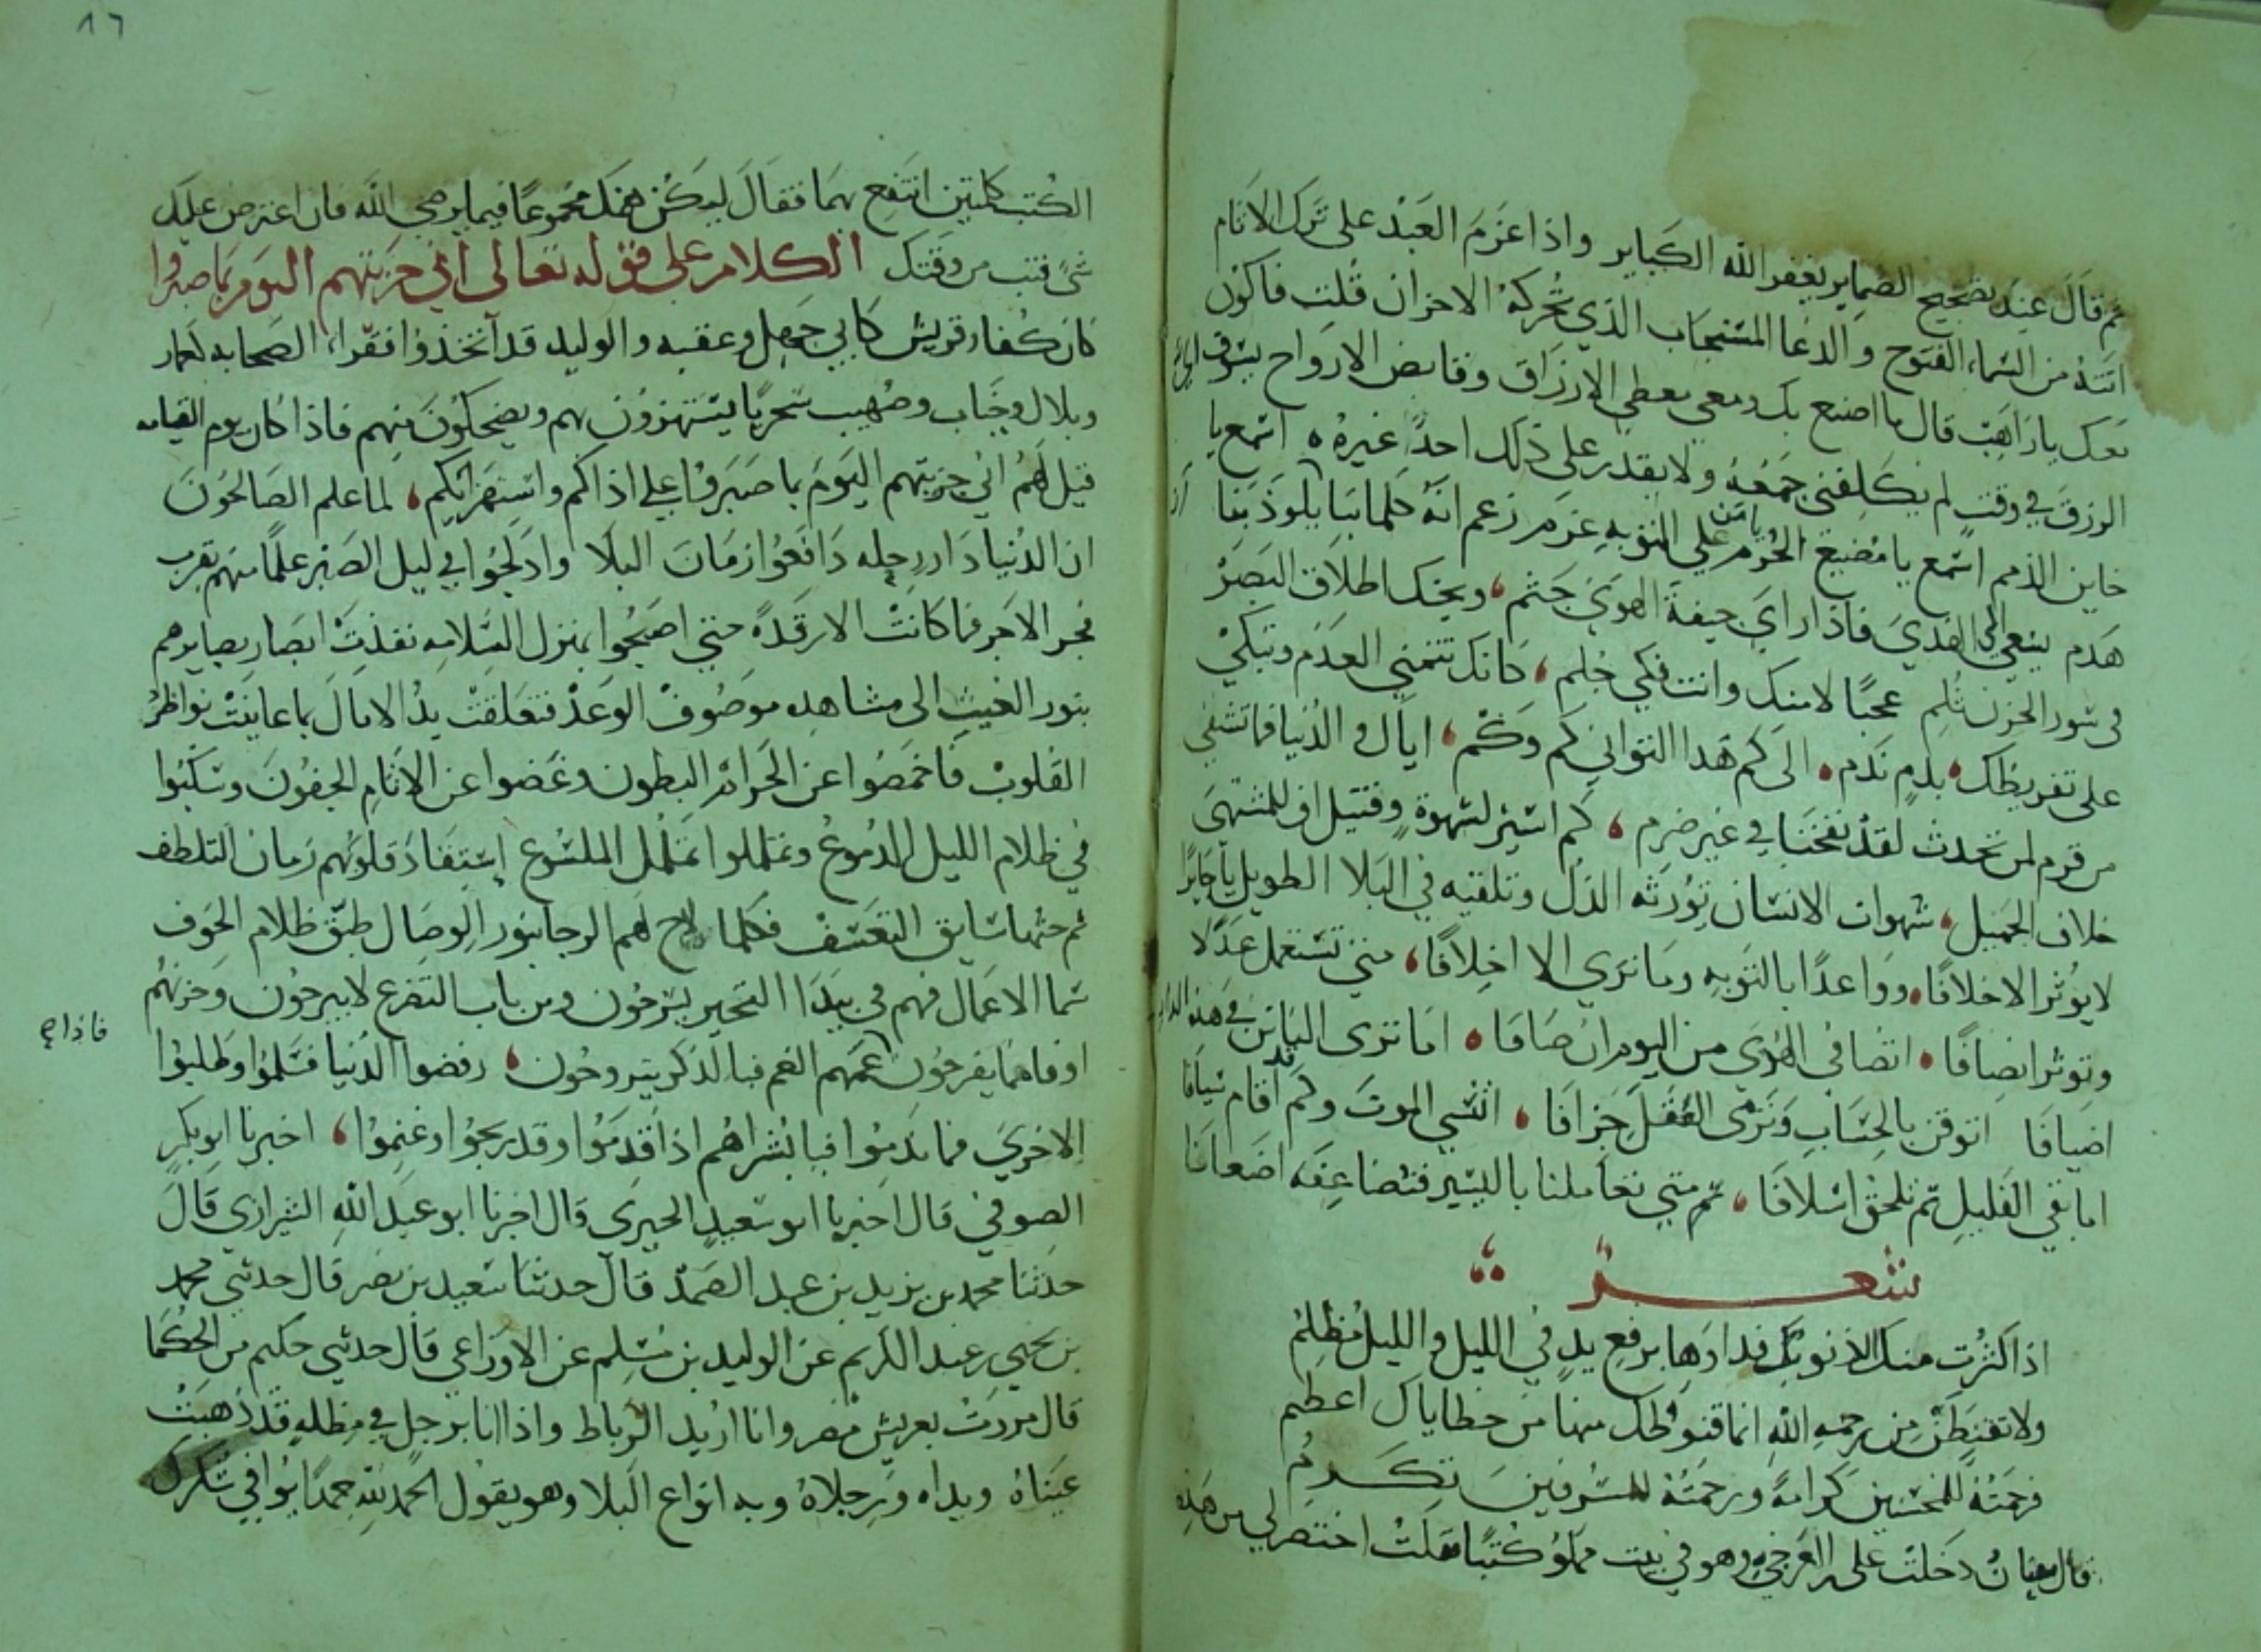 ثم قال عند تصحيح الضماير يغفر الله الكباير واذا عزم العبد على ترك الاثام
اتته من السماء الفتوح والدعا المستجاب الذي تحركه الاحزان قلت فاكون
معك يا راهب قال ما اصنع بك ومعي معطي الارزاق وقابض الارواح يسوق الي
الرزق في وقت لم يكلفني جمعه ولا يقدر على ذلك احدا غيره اسمع يا
خاين الذمم اسمع يا مضيع الحزم يا من على التوبه عزم زعم انه كلما بنا بلوذ بنا
هدم يسعى الى الهدي فاذا راى جيفة الهوى جثم ويحك اطلاق البصر
في سور الحزن ثلم عجبا لامنك وانت فكي جلم كانك تتمنى العدم وتبكي
على تفريطك بدم ندم الى كم هذا التواني كم وكم اياك والدنيا فما تشفي
من قرم لمن تحدث لقد نفخنا في غير ضرم كم اسير لشهوة وقتيل اف للمشتهى
خلاف الجميل شهوات الانسان تورثه الذل وتلقيه في البلا الطويل يا جايرا
لا يوثر الا خلافا وواعدا بالتوبه وما نرى الا اخلافا متى تستعمل عدلا
وتوثر انصافا انضافى الهوى من اليوم ان صافا اما ترى الناس في هذه الدار
اضيافا اتوقن بالحساب وترى الفعل جزافا اتنسى الموت وكم قد اقام سيافا
اما بقي القليل ثم تلحق اسلافا ثم متى تعاملنا باليسير فتضاعفه اضعافا
شعر
اذا كثرت منك الذنوب فداوها برفع يد في الليل والليل مظلم
ولا تقنطن من رحمه الله انما قنوطك منها من خطاياك اعظم
فرحمته للمحسنين كرامة ورحمته للمسرفين تكرم
قال سفيان دخلت على العرجي وهو في بيت مملو كتبا فقلت اختصر لي من هذه
٨٦
الكتب كلمتين انتفع بهما فقال ليكن همك مجموعا فيما يرضي الله فان اعترض عليك
شئ فتب من وقتك الكلام على قوله تعالى اني جزيتهم اليوم بما صبروا
كان كفار قريش كابي جهل وعقبه والوليد قد اتخذوا فقراء الصحابه كعمار
وبلال وخباب وصهيب سخريا يستهزؤون بهم ويضحكون منهم فاذا كان يوم القيامه
قيل لهم اني جزيتهم اليوم بما صبروا على اذاكم واستهزايكم لما علم الصالحون
ان الدنيا دار رحله دافعوا زمان البلا وادلجوا في ليل الصبر علما منهم بقرب
فجر الاجر فما كانت الا رقدة حتى اصبحوا بمنزل السلامه نفذت ابصار بصايرهم
بنور الغيب الى مشاهده موصوف الوعد فتعلقت يد الامال بما عاينت نواظر
القلوب فاخمصوا عن الحرام البطون وغضوا عن الاثام الجفون وسكبوا
في ظلام الليل الدموع وتململوا تململ الملسوع استقاد قلوبهم زمان التلطف
ثم حثها سايق التعسف فكلما لاح لهم الرجا بنور الوصال طبق ظلام الخوف
سما الاعمال فهم في بيدا التحير يسرحون ومن باب التضرع لا يبرحون وحزنهم
اوفاهما يفرحون عمهم الغم فبالذكر يتروحون رفضوا الدنيا فسلموا وطلبوا
فاذاج
الاخرى فما ندموا فيا بشراهم اذا قدموا وقد ربحوا وغنموا اخبرنا ابو بكر
الصوفي قال اخبرنا ابو سعيد الحيرى قال اخبرنا ابو عبد الله الشيرازي قال
حدثنا محمد بن يزيد بن عبد الصمد قال حدثنا سعيد بن نصر قال حدثني محمد
بن يحيى بن عبد الكريم عن الوليد بن مسلم عن الاوزاعي قال حدثني حكيم من الحكما
قال مررت بعريش مصر وانا اريد الرباط واذا انا برجل في مظله قد ذهبت
عيناه ويداه ورجلاه وبه انواع البلا وهو يقول الحمد لله حمدا يوافي شكرك